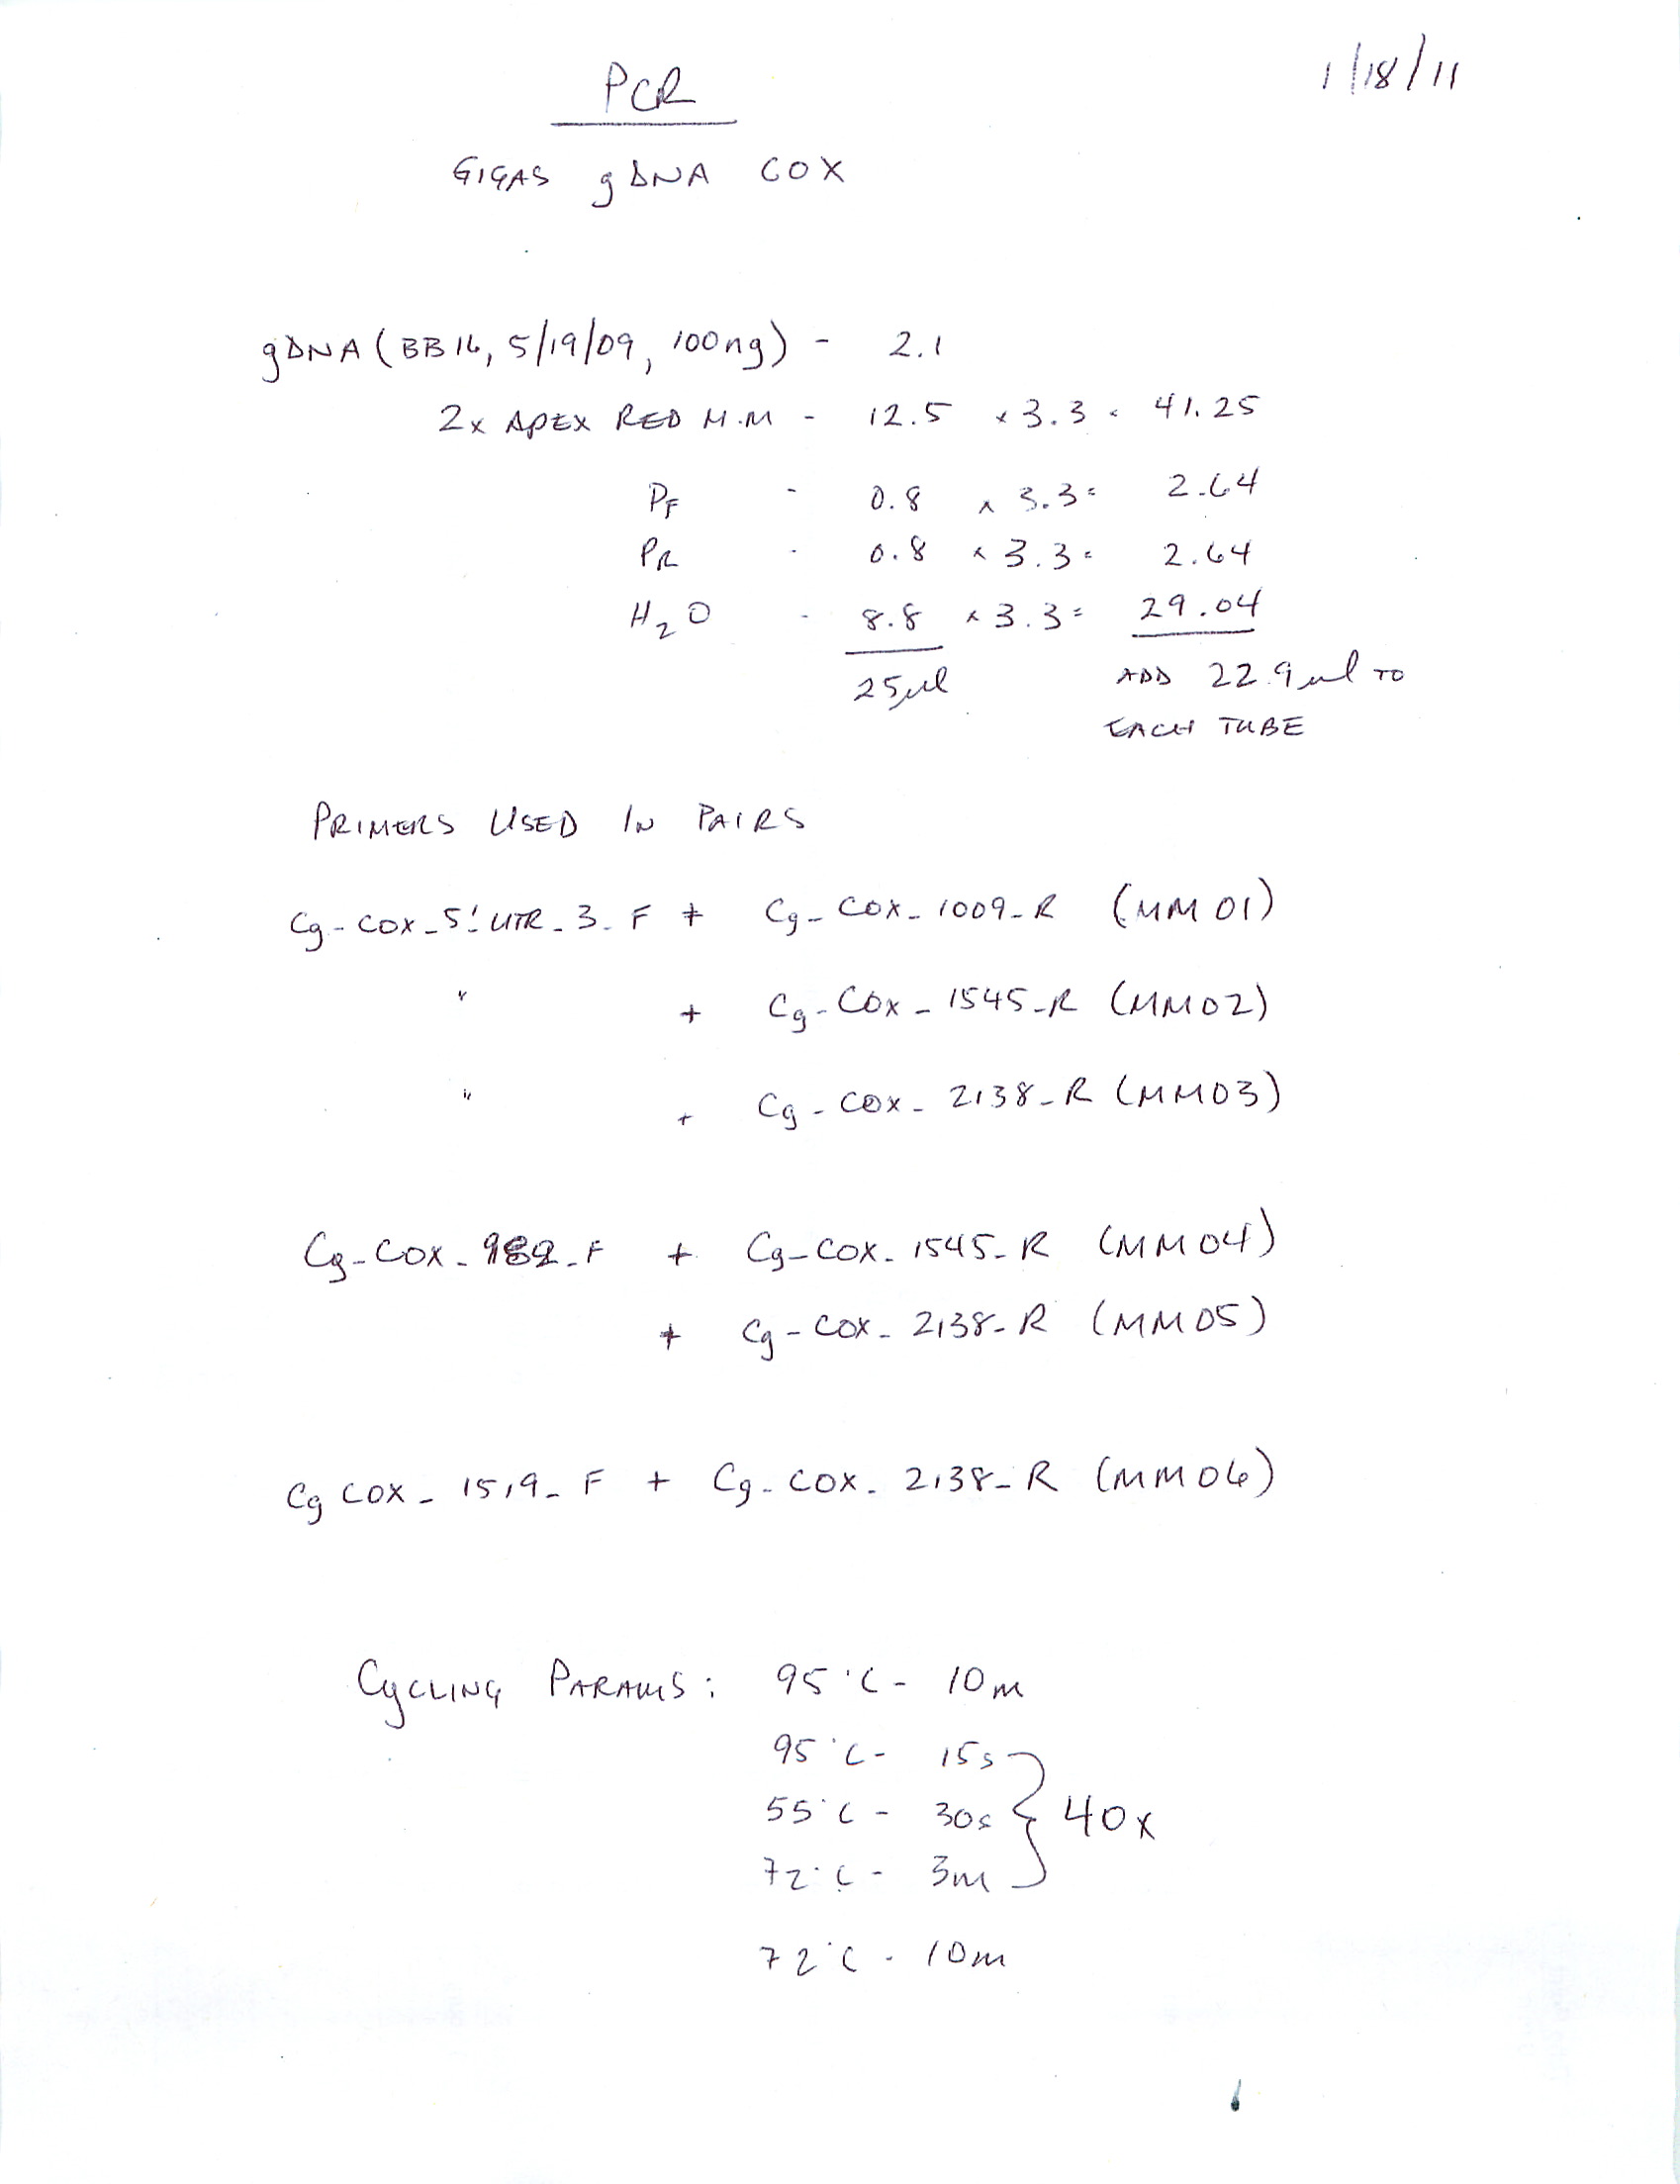 1/18/11
PCR
GIGAS gDNA COX
gDNA (BB16, 5/19/09, 100ng) - 2.1
2x APEX RED M.M - 12.5 x 3.3 = 41.25
PF - 0.8 x 3.3 = 2.64
PR - 0.8 x 3.3 = 2.64
H2O - 8.8 x 3.3 = 29.04
25µl ADD 22.9µl TO
EACH TUBE
PRIMERS USED IN PAIRS
Cg-COX_5'UTR_3_F + Cg-COX_1009_R (MM01)
" + Cg-COX_1545_R (MM02)
" + Cg-COX_2138_R (MM03)
Cg-COX_982_F + Cg-COX_1545_R (MM04)
+ Cg-COX_2138_R (MM05)
Cg COX_1519_F + Cg-COX_2138_R (MM06)
CYCLING PARAMS: 95°C - 10m
95°C - 15s
55°C - 30s } 40x
72°C - 3m
72°C - 10m